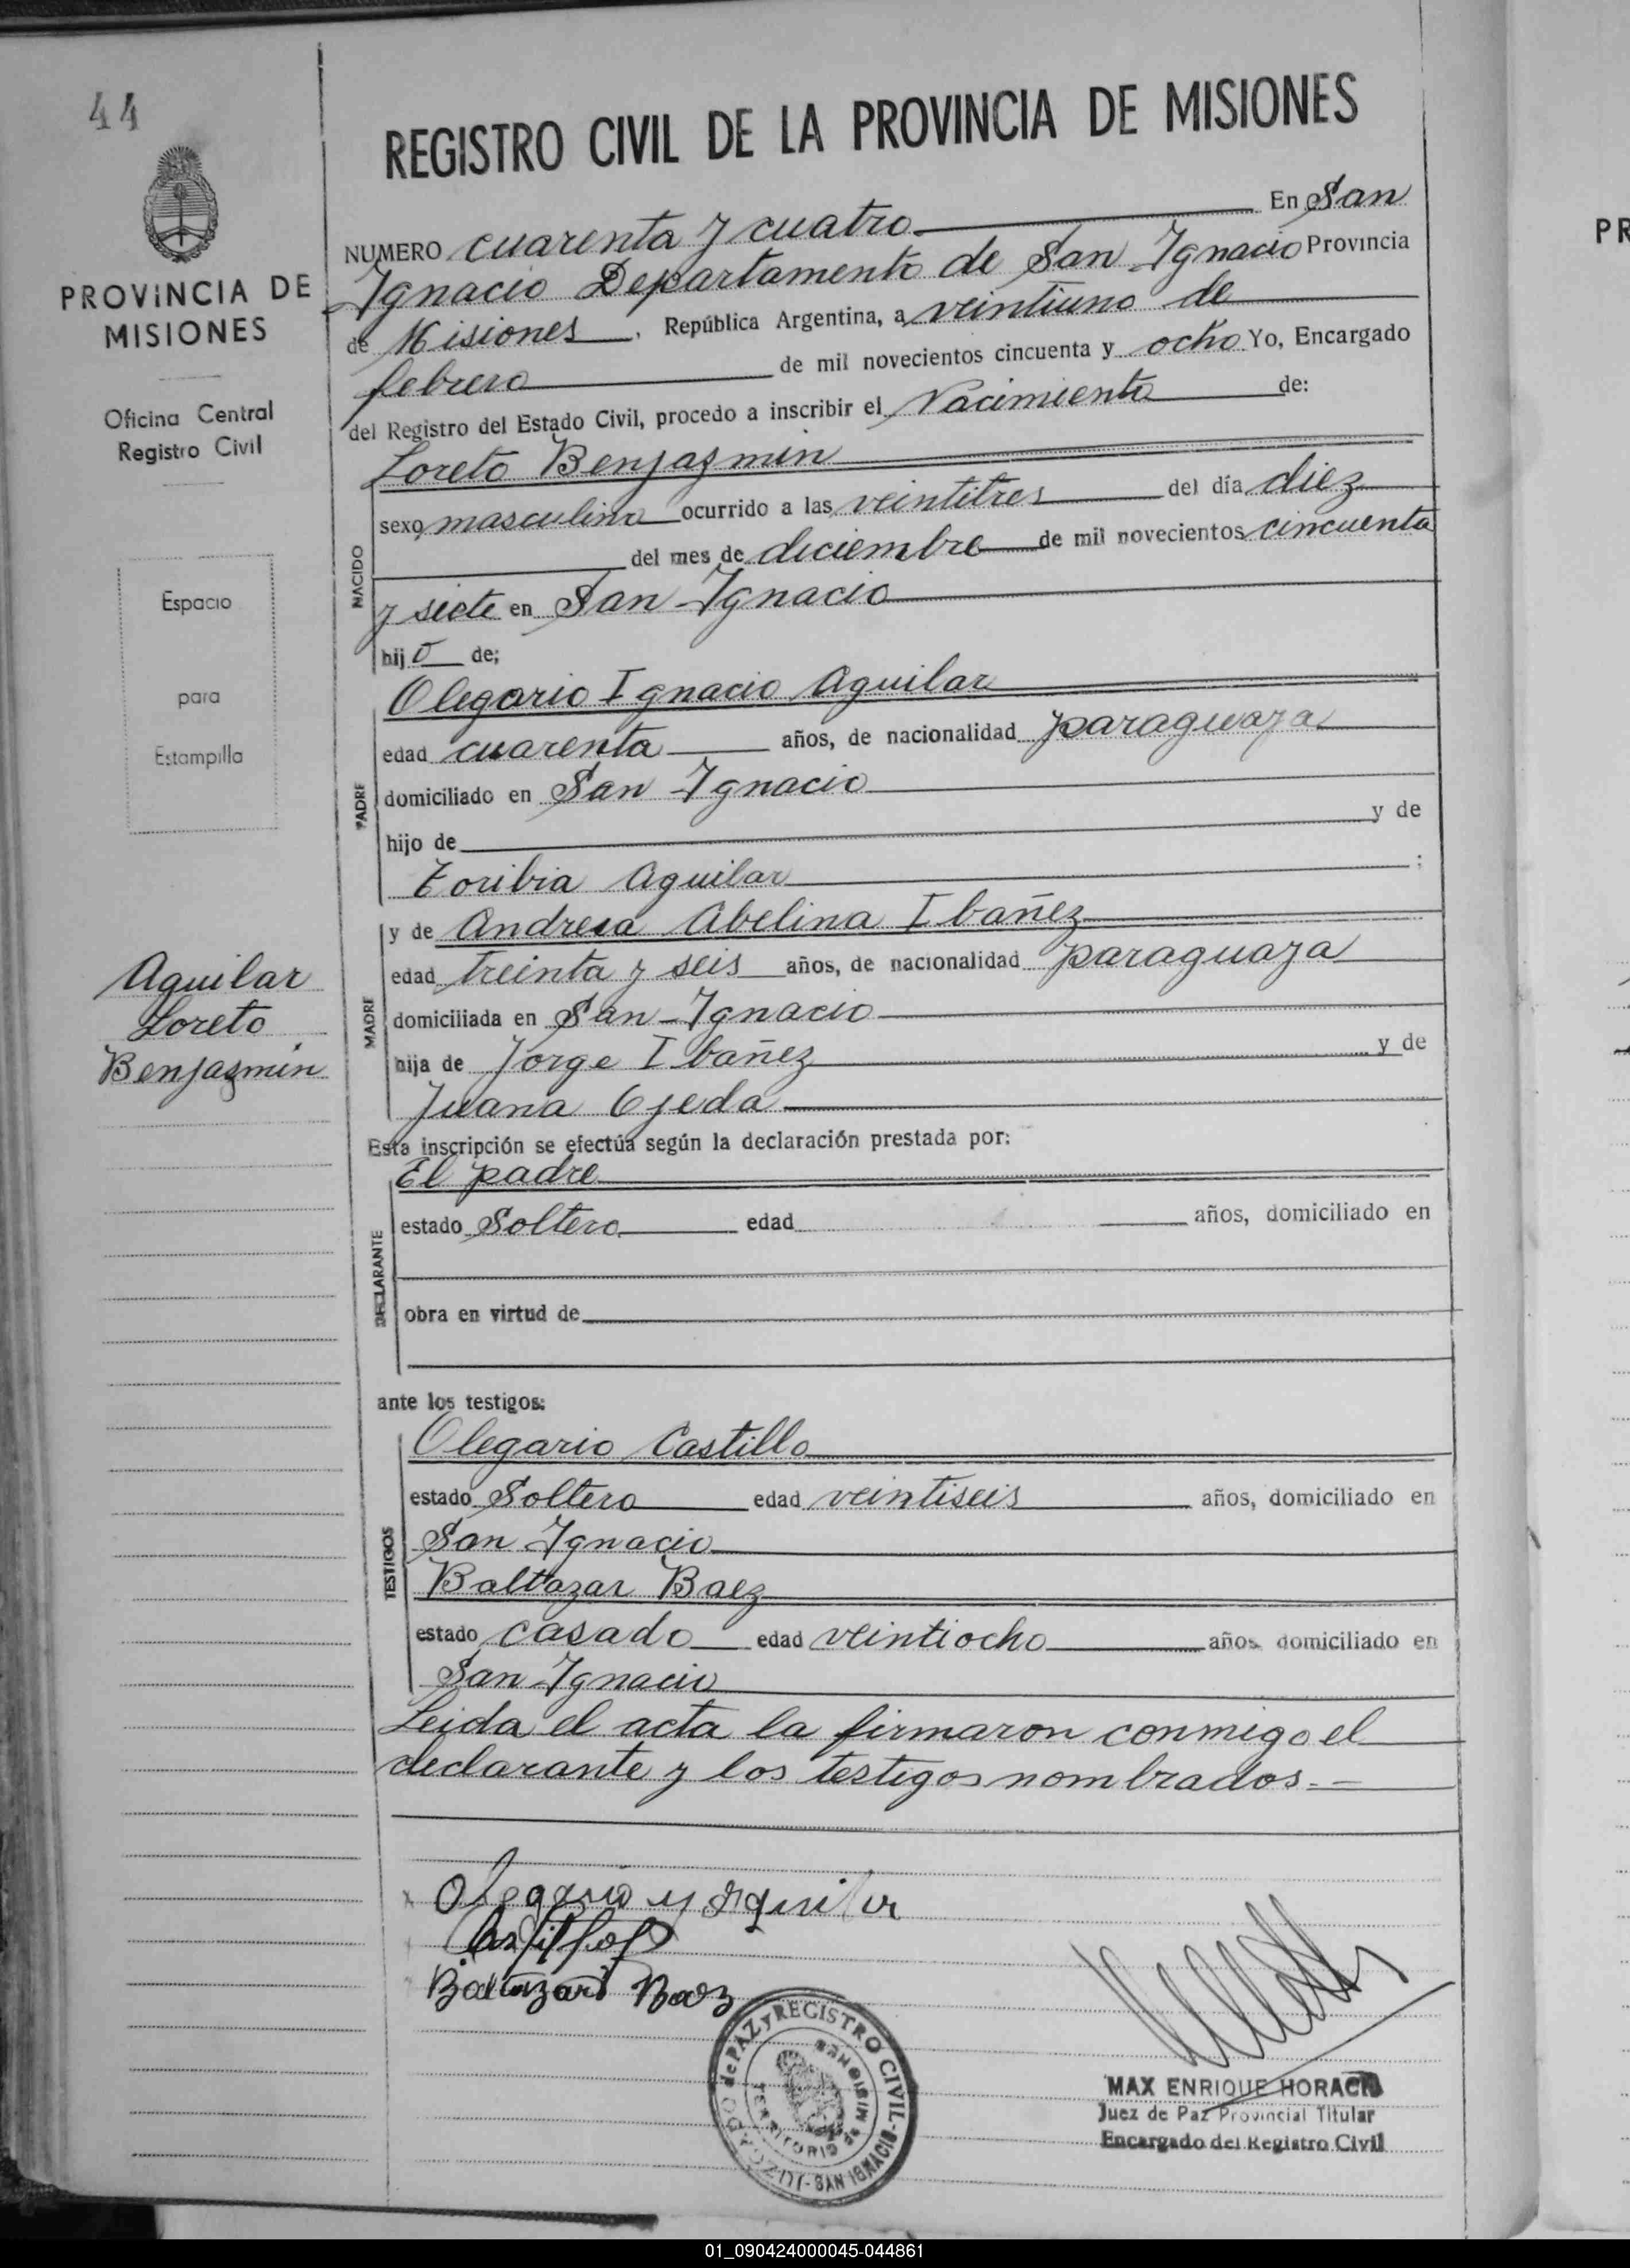 44
PROVINCIA DE
MISIONES
Oficina Central
Registro Civil
Espacio
para
Estampilla
Aguilar
Loreto
Benjazmin
REGISTRO CIVIL DE LA PROVINCIA DE MISIONES
NUMERO cuarenta y cuatro En San
Ignacio Departamento de San Ignacio Provincia
de Misiones, República Argentina, a veintiuno de
febrero de mil novecientos cincuenta y ocho Yo, Encargado
del Registro del Estado Civil, procedo a inscribir el Nacimiento de:
NACIDO
Loreto Benjazmin
sexo masculino ocurrido a las veintitres del día diez
del mes de diciembre de mil novecientos cincuenta
y siete en San Ignacio
hijo de;
PADRE
Olegario Ignacio Aguilar
edad cuarenta años, de nacionalidad paraguaya
domiciliado en San Ignacio
hijo de y de
Toribia Aguilar ;
MADRE
y de Andresa Abelina Ibañez
edad treinta y seis años, de nacionalidad paraguaya
domiciliada en San Ignacio
hija de Jorge Ibañez y de
Juana Ojeda
Esta inscripción se efectúa según la declaración prestada por:
DECLARANTE
El padre
estado Soltero edad años, domiciliado en
obra en virtud de
ante los testigos:
TESTIGOS
Olegario Castillo
estado Soltero edad veintiseis años, domiciliado en
San Ignacio
Baltazar Baez
estado casado edad veintiocho años domiciliado en
San Ignacio
Leida el acta la firmaron conmigo el
declarante y los testigos nombrados.-
x Olegario y Aguilar
Baltazar Baez
JUZGADO de PAZ y REGISTRO CIVIL - SAN IGNACIO -
TERRITORIO de MISIONES
MAX ENRIQUE HORACIO
Juez de Paz Provincial Titular
Encargado del Registro Civil
PR
01_090424000045-044861